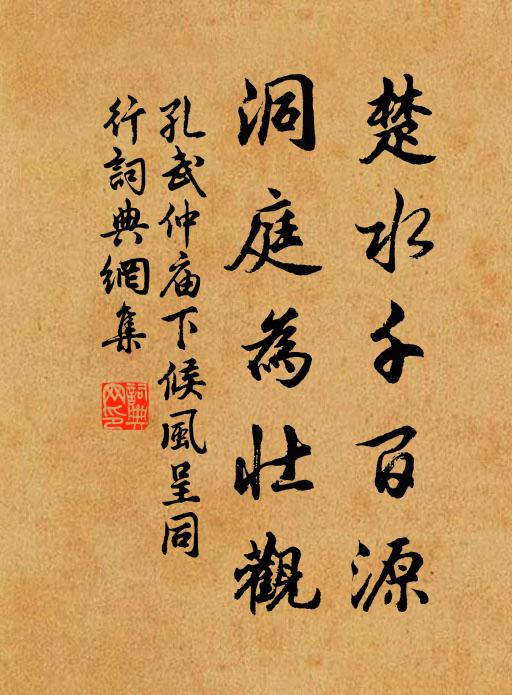 楚水千百源
洞庭為壯觀
孔武仲庙下候風呈同
行詞典網集
詞典
网印